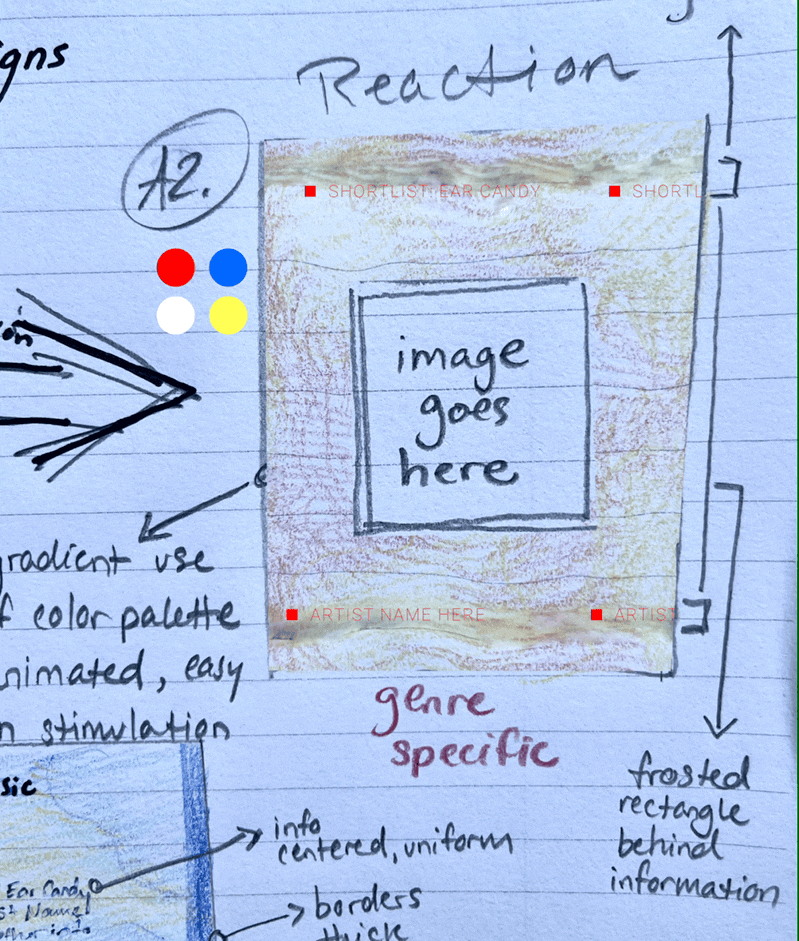 igns
Reaction
A2.
SHORTLIST: EAR CANDY
SHORTL
on
image
goes
here
radient use
f color palette
nimated, easy
n stimulation
ARTIST NAME HERE
ARTIST
genre
specific
frosted
rectangle
behind
information
sic
info
centered, uniform
Ear Candy
st Name
other info
borders
thick